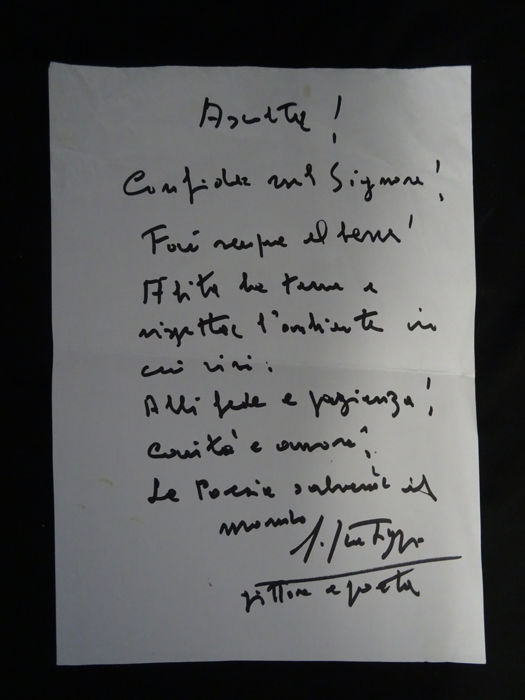 Ascolta!
Confida nel Signore!
Farai sempre il bene!
Abita la terra e
rispetta l'ambiente in
cui vivi.
Abbi fede e pazienza!
Carità e amore!
La Poesia salverà il
mondo
pittore e poeta